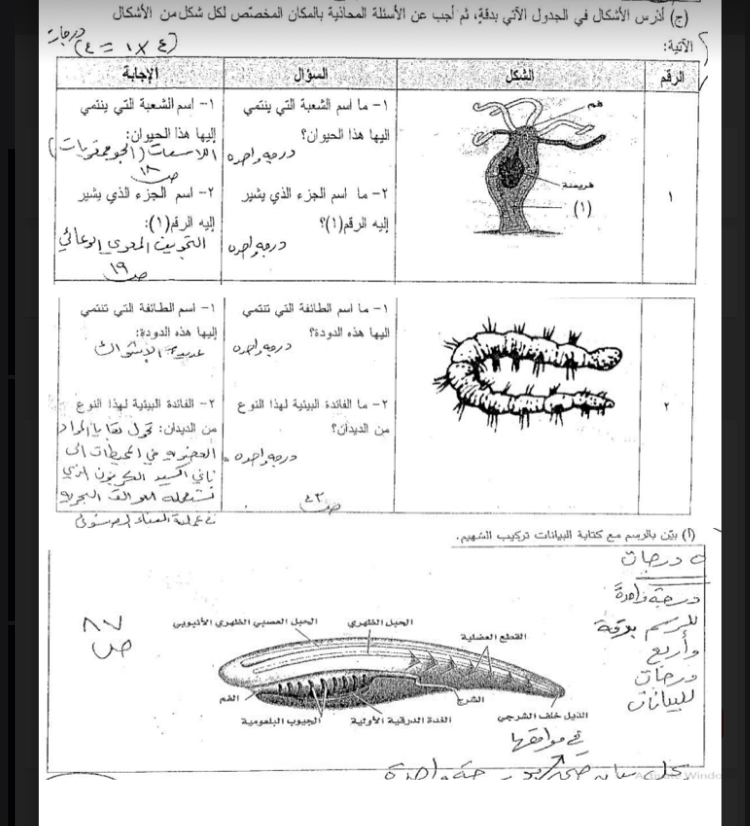 (ج) أدرس الأشكال في الجدول الآتي بدقة، ثم أجب عن الأسئلة المحاذية بالمكان المخصّص لكل شكل من الأشكال
الآتية: (٤ × ١ = ٤) درجات
الرقم الشكل السؤال الإجابة
١
فم
فريسة
(١)
١- ما اسم الشعبة التي ينتمي
اليها هذا الحيوان؟
درجة واحدة
٢- ما اسم الجزء الذي يشير
اليه الرقم(١)؟
درجة واحدة
١- اسم الشعبة التي ينتمي
إليها هذا الحيوان:
اللاسعات (الجوفمعويات)
ص ١٨
٢- اسم الجزء الذي يشير
إليه الرقم(١):
التجويف المعوي الوعائي
ص ١٩
٢
١- ما اسم الطائفة التي تنتمي
اليها هذه الدودة؟
درجة واحدة
٢- ما الفائدة البيئية لهذا النوع
من الديدان؟
درجة واحدة
ص ٤٣
١- اسم الطائفة التي تنتمي
إليها هذه الدودة:
عديدة الأشواك
٢- الفائدة البيئية لهذا النوع
من الديدان: تحول بقايا المواد
العضوية في المحيطات الى
ثاني اكسيد الكربون الذي
تستعمله العوالق البحرية
في عملية البناء الضوئي
(أ) بيّن بالرسم مع كتابة البيانات تركيب السُّهيم.
٥ درجات
درجة واحدة
للرسم بدقة
وأربع
درجات
للبيانات
ص ٨٧
الحبل العصبي الظهري الأنبوبي
الحبل الظهري
القطع العضلية
الفم
الجيوب البلعومية
الغدة الدرقية الأولية
الشرج
الذيل خلف الشرجي
في مواقعها
Activate Windo